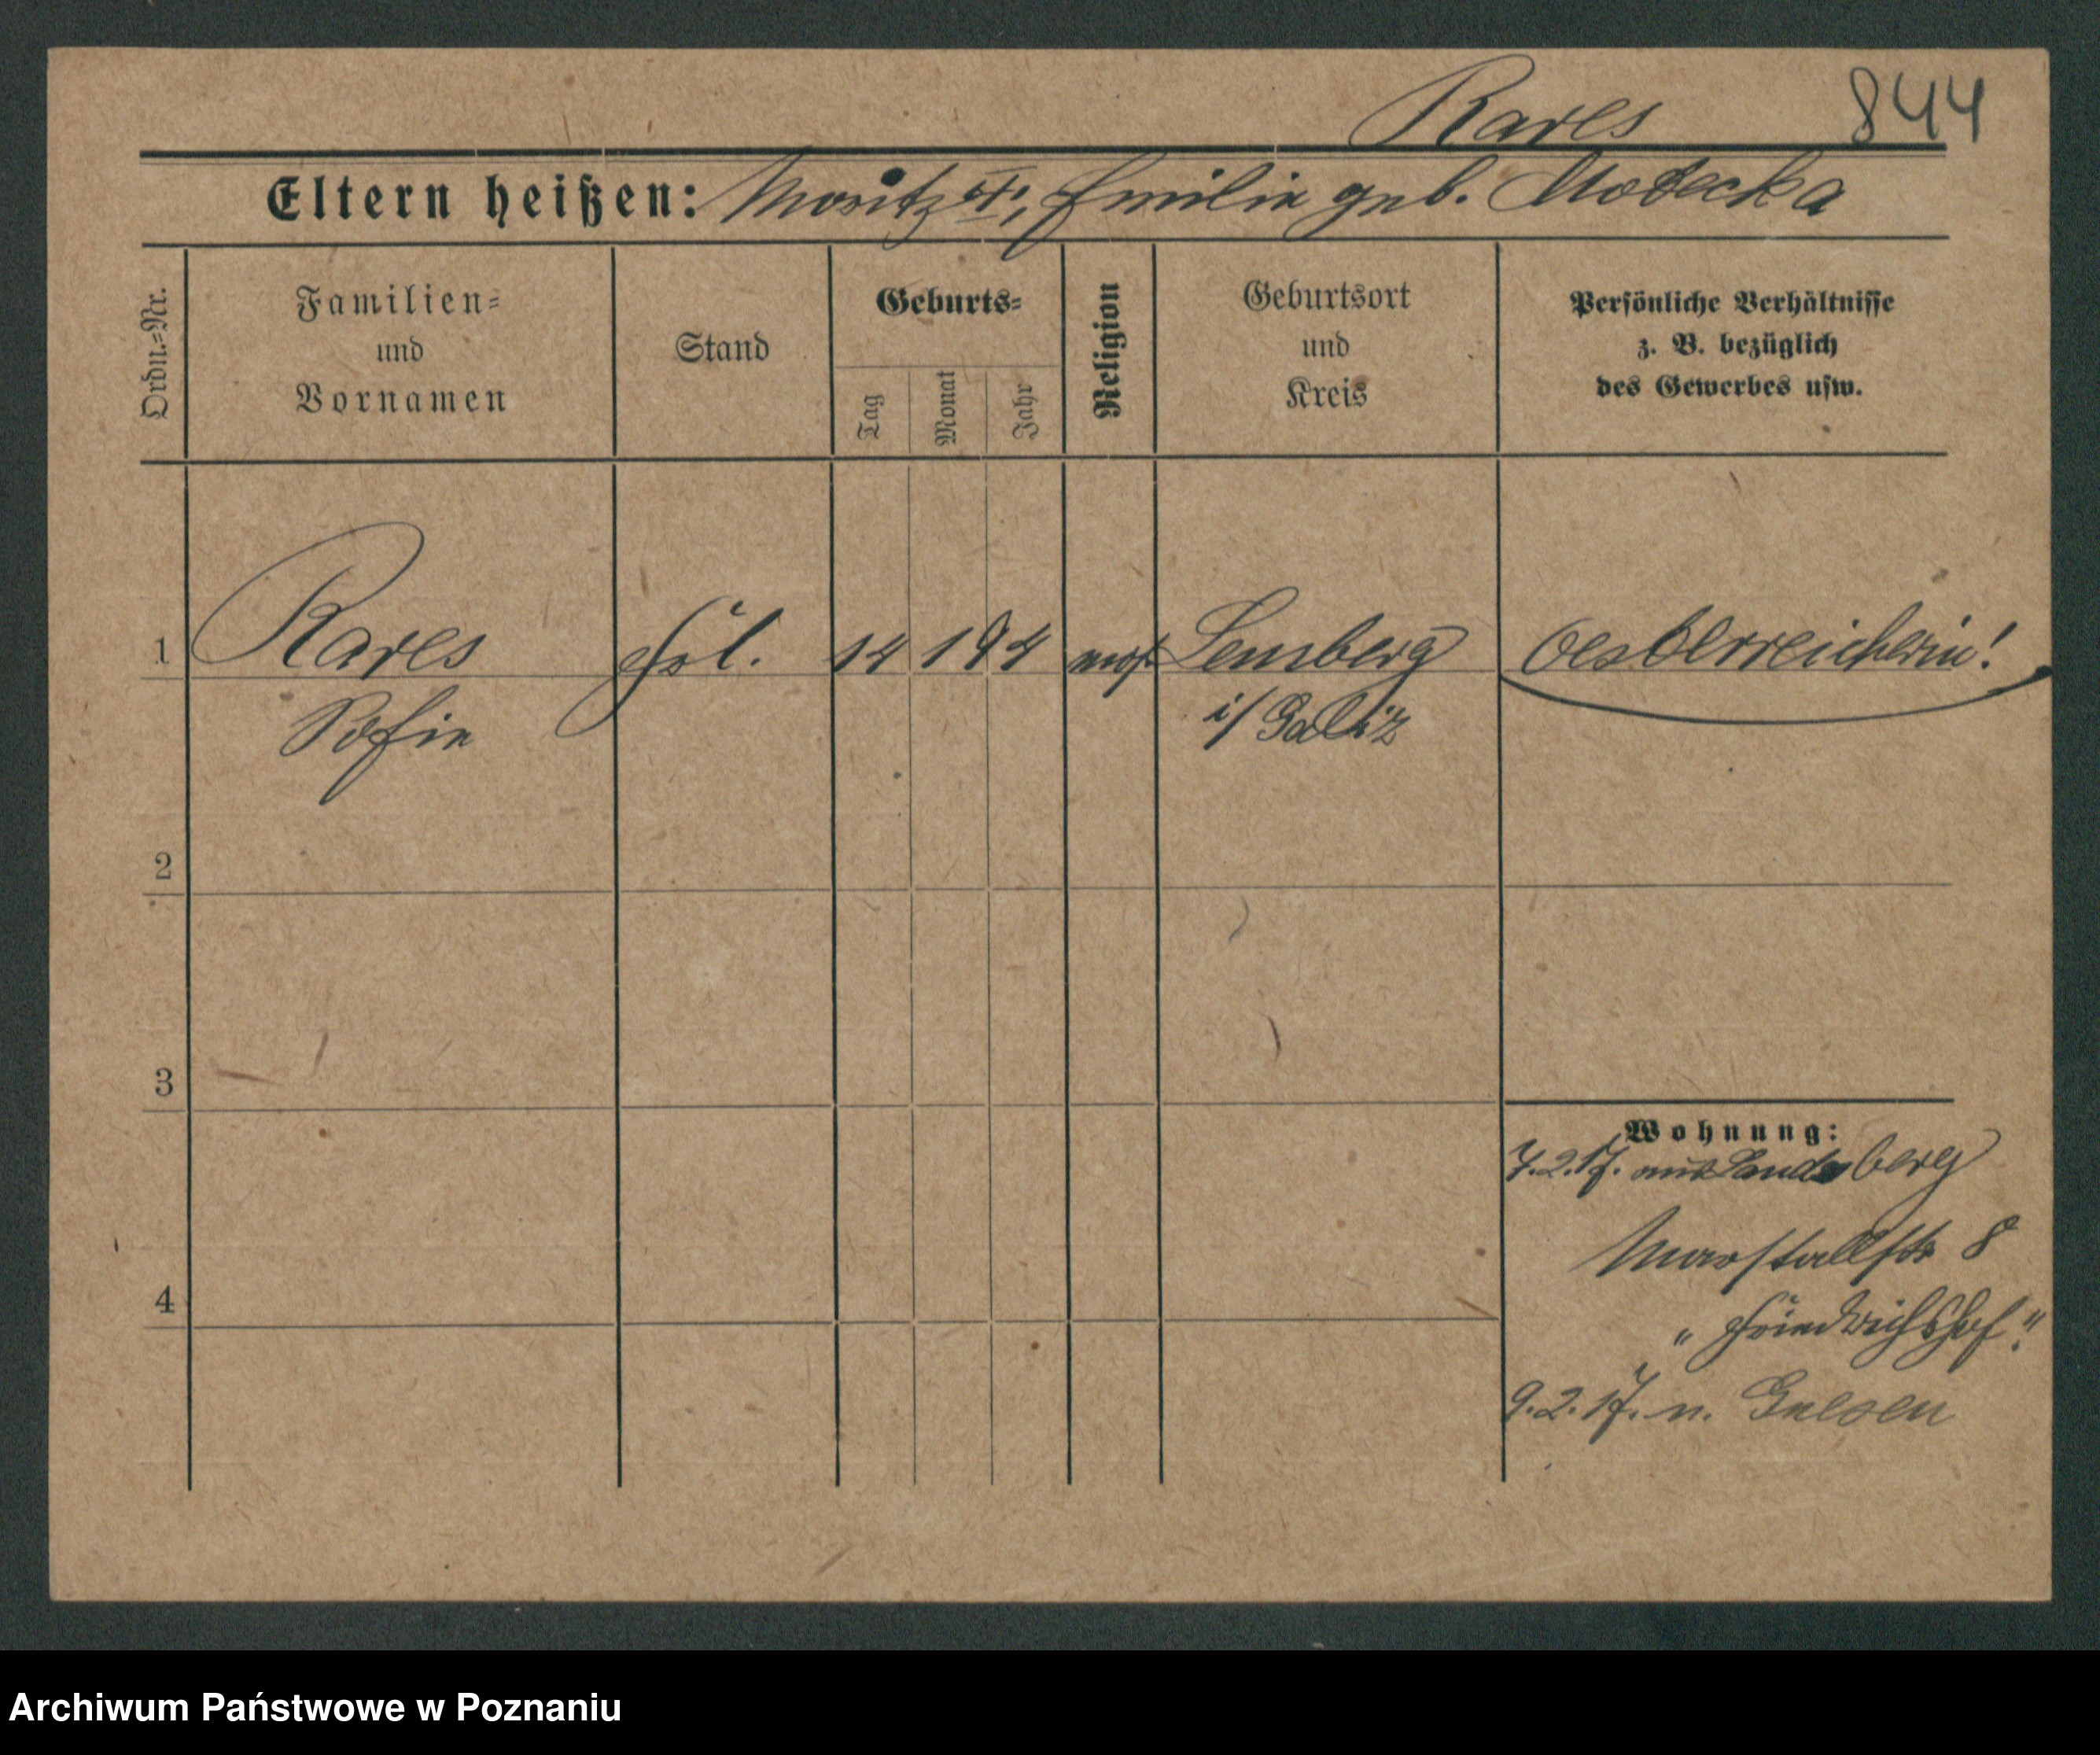 Rares 844
Eltern heißen: Moritz †, Emilie geb. Motecka
Ordn.=Nr.
Familien=
und
Vornamen
Stand
Geburts=
Tag
Monat
Jahr
Religion
Geburtsort
und
Kreis
Persönliche Verhältnisse
z. B. bezüglich
des Gewerbes usw.
1 Rares Frl. 14 1 94 mos. Lemberg Oesterreicherin!
Sofie i/ Galiz
2
3
4
Wohnung:
7.2.17. aus Landsberg
Marstallstr 8
„Friedrichshof."
9.2.17. n.
Archiwum Państwowe w Poznaniu